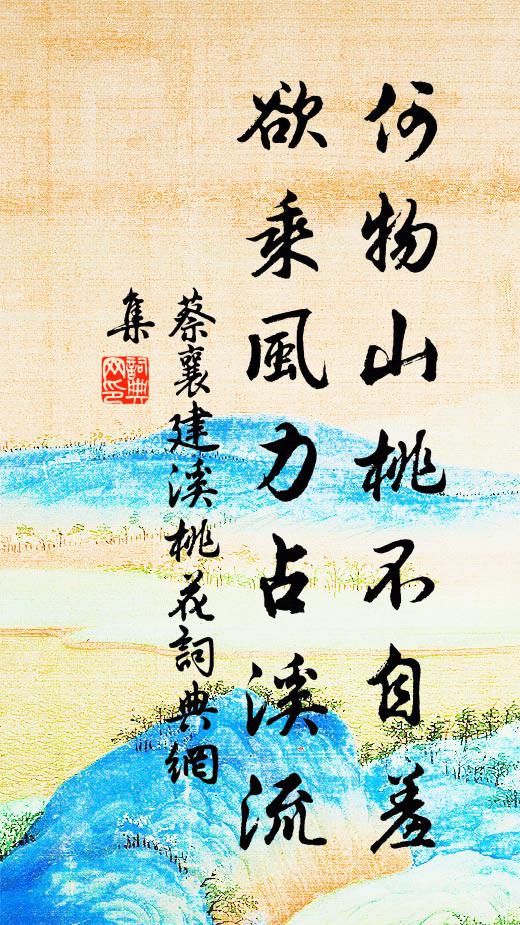 何物山桃不自羞
欲乘風力占溪流
蔡襄建溪桃花詞典網
集
詞典
网印